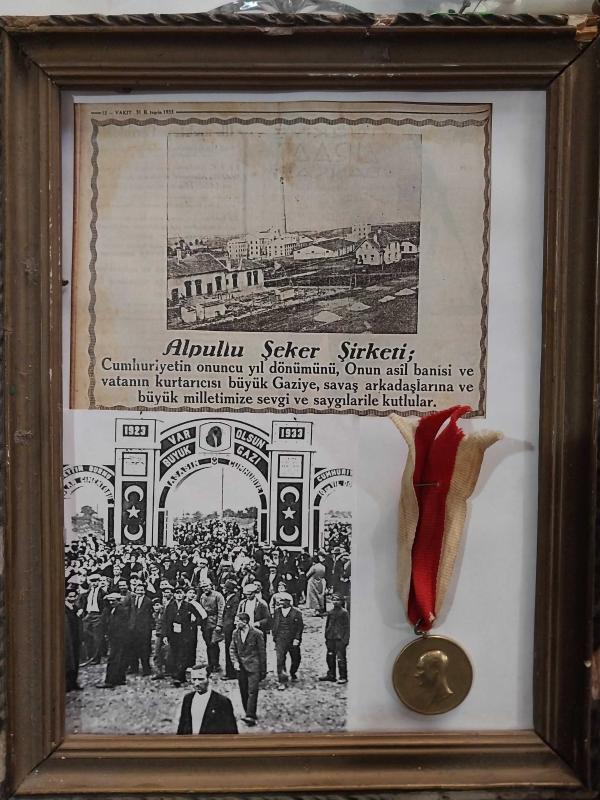 12 — VAKIT 31 B. teşrin 1933
Alpullu Şeker Şirketi;
Cumhuriyetin onuncu yıl dönümünü, Onun asil banisi ve
vatanın kurtarıcısı büyük Gaziye, savaş arkadaşlarına ve
büyük milletimize sevgi ve saygılarile kutlular.
1923
1933
VAR OLSUN
BÜYÜK GAZİ
YAŞASIN CUMHURİYET